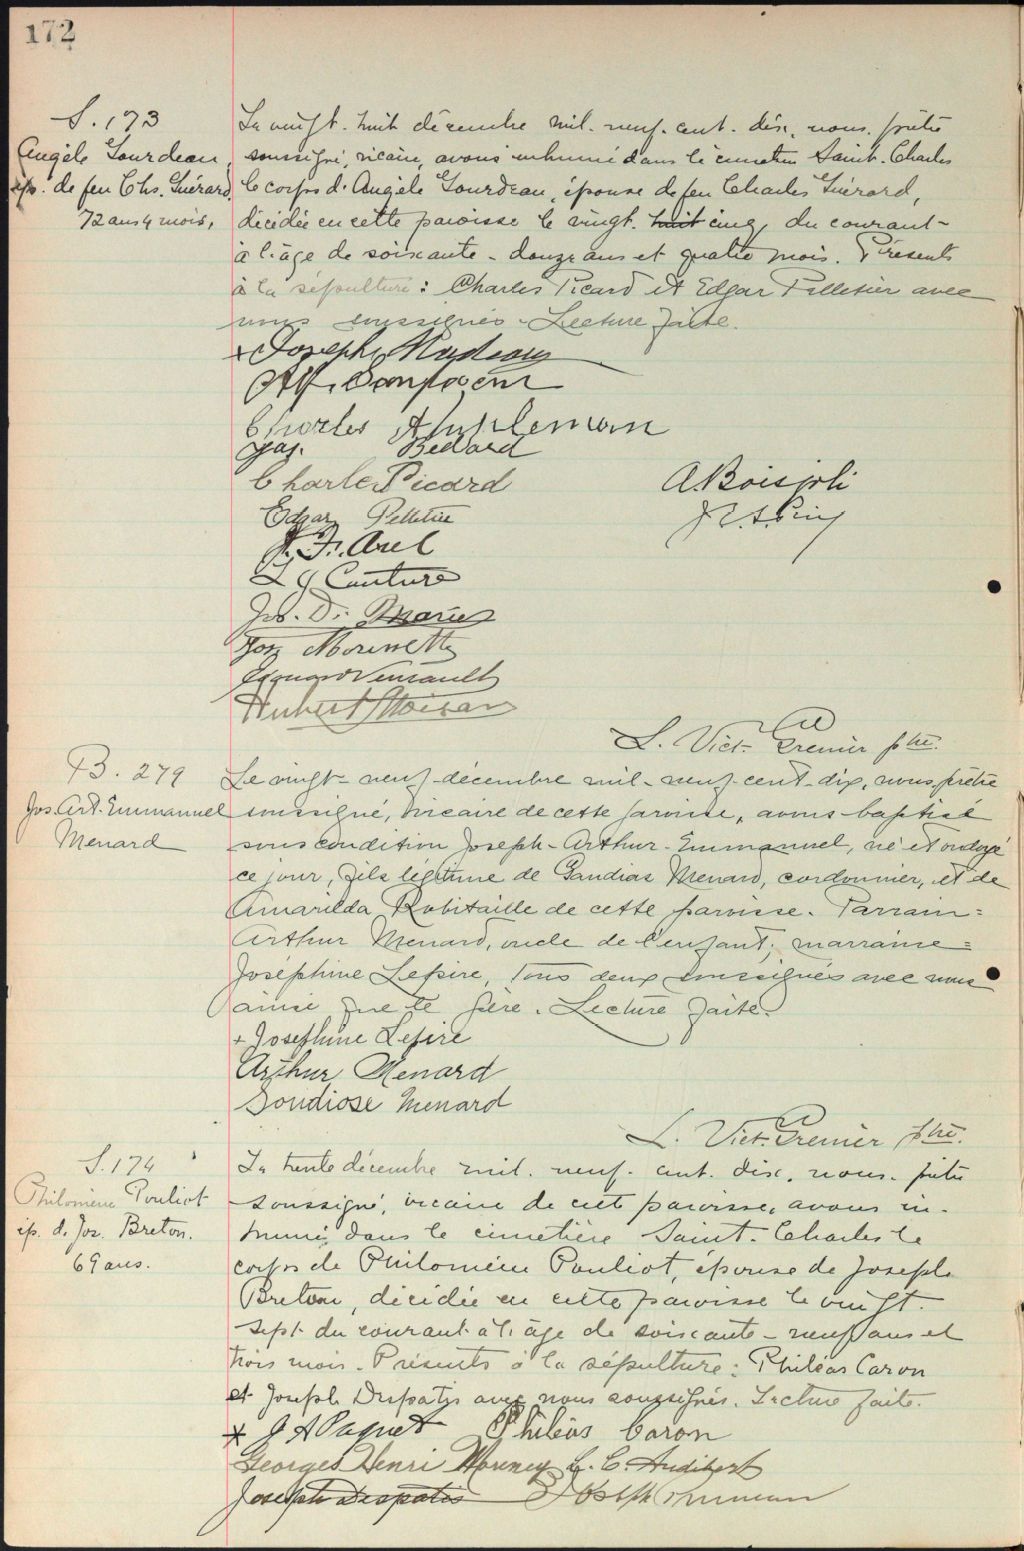 172
S. 173
Angèle Gourdeau,
ép. de feu Chs. Guérard.
72 ans 4 mois.
Le vingt-huit décembre mil-neuf-cent-dix, nous, prêtre
soussigné, vicaire, avons inhumé dans le cimetière Saint-Charles
le corps d'Angèle Gourdeau, épouse de feu Charles Guérard,
décédée en cette paroisse le vingt-huit cinq, du courant
à l'âge de soixante-douze ans et quatre mois. Présents
à la sépulture: Charles Picard et Edgar Pelletier avec
nous soussignés. Lecture faite.
+ Joseph
Alf.
Charles
Jos. Bedard
Charles Picard
A. Boisjoli
Edgar Pelletier
Arel
Couture
Jos. D.
Jos Morissette
Hubert
L. Vict. Grenier ptre.
B. 279
Jos. Art. Emmanuel
Menard
Le vingt-neuf décembre mil-neuf-cent-dix, nous, prêtre
soussigné, vicaire de cette paroisse, avons baptisé
sous condition Joseph-Arthur-Emmanuel, né et ondoyé
ce jour, fils légitime de Gaudias Menard, cordonnier, et de
Amarilda Robitaille de cette paroisse. Parrain=
Arthur Menard, oncle de l'enfant; marraine=
Joséphine Lepire, tous deux soussignés avec nous
ainsi que le père. Lecture faite.
+ Josephine Lepire
Arthur Menard
Goudiose Menard
L. Vict. Grenier ptre.
S. 174
Philomène Pouliot
ép. d. Jos. Breton.
69 ans.
Le trente décembre mil-neuf-cent-dix, nous, prêtre
soussigné, vicaire de cette paroisse, avons in-
humé dans le cimetière Saint-Charles le
corps de Philomène Pouliot, épouse de Joseph
Breton, décédée en cette paroisse le vingt-
sept du courant à l'âge de soixante-neuf ans et
trois mois. Présents à la sépulture: Philéas Caron
et Joseph Despatis avec nous soussignés. Lecture faite.
* J A Paquet Philéas Caron
Georges Henri E. Audibert
Joseph Despatis Joseph